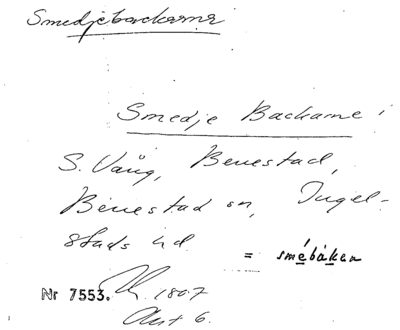 Smedjebackarna
Smedje Backarne
S. Vång, Benestad,
Benestad sn, Ingel-
stads hd
= smébákan
Nr 7553. 1807
Akt 6.